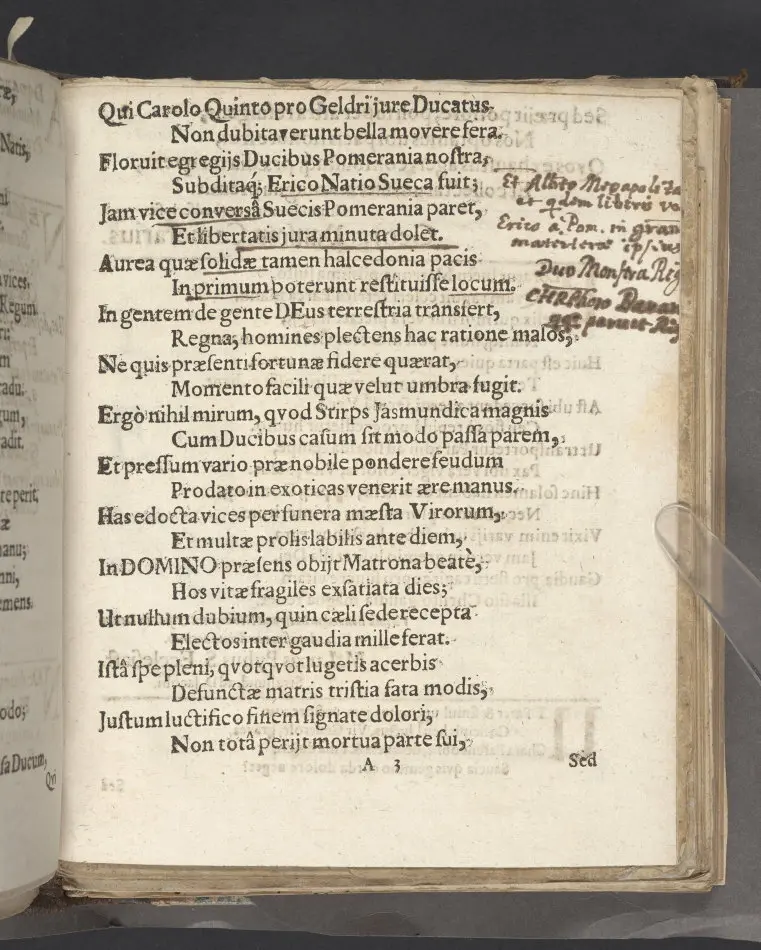 Qui Carolo Quinto pro Geldri jure Ducatus
Non dubitaverunt bella movere fera.
Floruit egregijs Ducibus Pomerania nostra,
Subditaq́; Erico Natio Sueca fuit;
Jam vice conversâ Suecis Pomerania paret,
Et libertatis jura minuta dolet.
Aurea quæ solidæ tamen halcedonia pacis
In primum poterunt restituisse locum.
In gentem de gente DEus terrestria transfert,
Regna; homines plectens hac ratione malos,
Ne quis præsenti fortunæ fidere quærat,
Momento facili quæ velut umbra fugit.
Ergò nihil mirum, qvod Stirps Jasmundica magnis
Cum Ducibus casum sit modo passa parem,
Et pressum vario prænobile pondere feudum
Prodato in exoticas venerit ære manus.
Has edocta vices per funera mæsta Virorum,
Et multæ prolis labilis ante diem,
In DOMINO præsens obijt Matrona beatè,
Hos vitæ fragiles exsatiata dies;
Ut nullum dubium, quin cæli sede recepta
Electos inter gaudia mille ferat.
Istâ spe pleni, qvotqvot lugetis acerbis
Defunctæ matris tristia fata modis,
Justum luctifico finem signate dolori,
Non totâ perijt mortua parte sui,
A 3
Sed
Et Alberto
et qdem
Erico à Pom. in
Duo Monstra
paruit
Natis,
vices.
Regum
adit.
te perit,
mens.
odo;
sa Ducum,
Qui